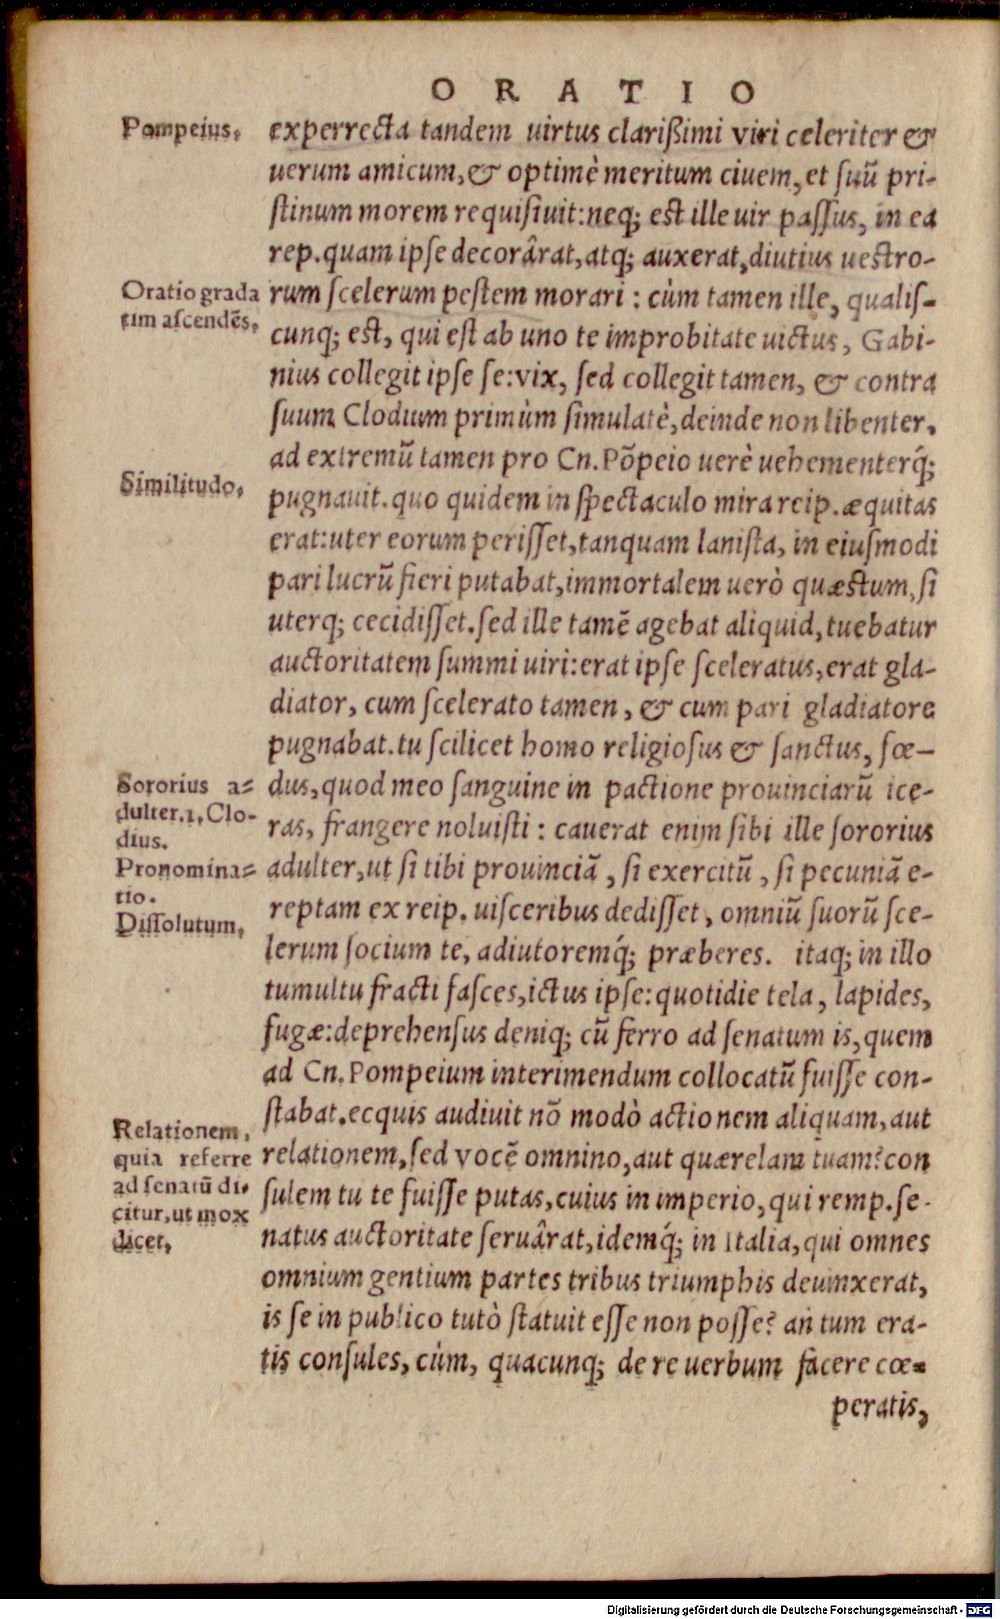 ORATIO
Pompeius,
experrecta tandem uirtus clarißimi viri celeriter &
uerum amicum,& optimè meritum ciuem,et suũ pri-
stinum morem requisiuit:neq; est ille uir passus, in ea
rep.quam ipse decorârat,atq; auxerat,diutius uestro-
Oratio grada
tim ascendẽs,
rum scelerum pestem morari : cùm tamen ille, qualis-
cunq; est, qui est ab uno te improbitate uictus, Gabi-
nius collegit ipse se:vix, sed collegit tamen, & contra
suum Clodium primùm simulatè,deinde non libenter,
ad extremũ tamen pro Cn.Põpeio uerè uehementerq́;
Similitudo,
pugnauit.quo quidem in spectaculo mira reip.æquitas
erat:uter eorum perisset,tanquam lanista, in eiusmodi
pari lucrũ fieri putabat,immortalem uerò quæstum,si
uterq; cecidisset.sed ille tamẽ agebat aliquid,tuebatur
auctoritatem summi uiri:erat ipse sceleratus,erat gla-
diator, cum scelerato tamen, & cum pari gladiatore
pugnabat.tu scilicet homo religiosus & sanctus, fœ-
Sororius a-
dulter.1,Clo-
dius.
dus,quod meo sanguine in pactione prouinciarũ ice-
ras, frangere noluisti : cauerat enim sibi ille sororius
Pronomina-
tio.
Dissolutum,
adulter,ut si tibi prouinciã, si exercitũ, si pecuniã e-
reptam ex reip. uisceribus dedisset, omniũ suorũ sce-
lerum socium te, adiutoremq́; præberes. itaq; in illo
tumultu fracti fasces,ictus ipse:quotidie tela, lapides,
fugæ:deprehensus deniq; cũ ferro ad senatum is,quem
ad Cn.Pompeium interimendum collocatũ fuisse con-
stabat.ecquis audiuit nõ modò actionem aliquam,aut
Relationem,
quia referre
ad senatũ di-
citur,ut mox
dicet,
relationem,sed vocẽ omnino,aut quærelam tuam?con
sulem tu te fuisse putas,cuius in imperio,qui remp.se-
natus auctoritate seruârat,idemq́; in Italia,qui omnes
omnium gentium partes tribus triumphis deuinxerat,
is se in publico tutò statuit esse non posse? an tum era-
tis consules, cùm, quacunq; de re uerbum facere cœ-
peratis,
Digitalisierung gefördert durch die Deutsche Forschungsgemeinschaft - DFG